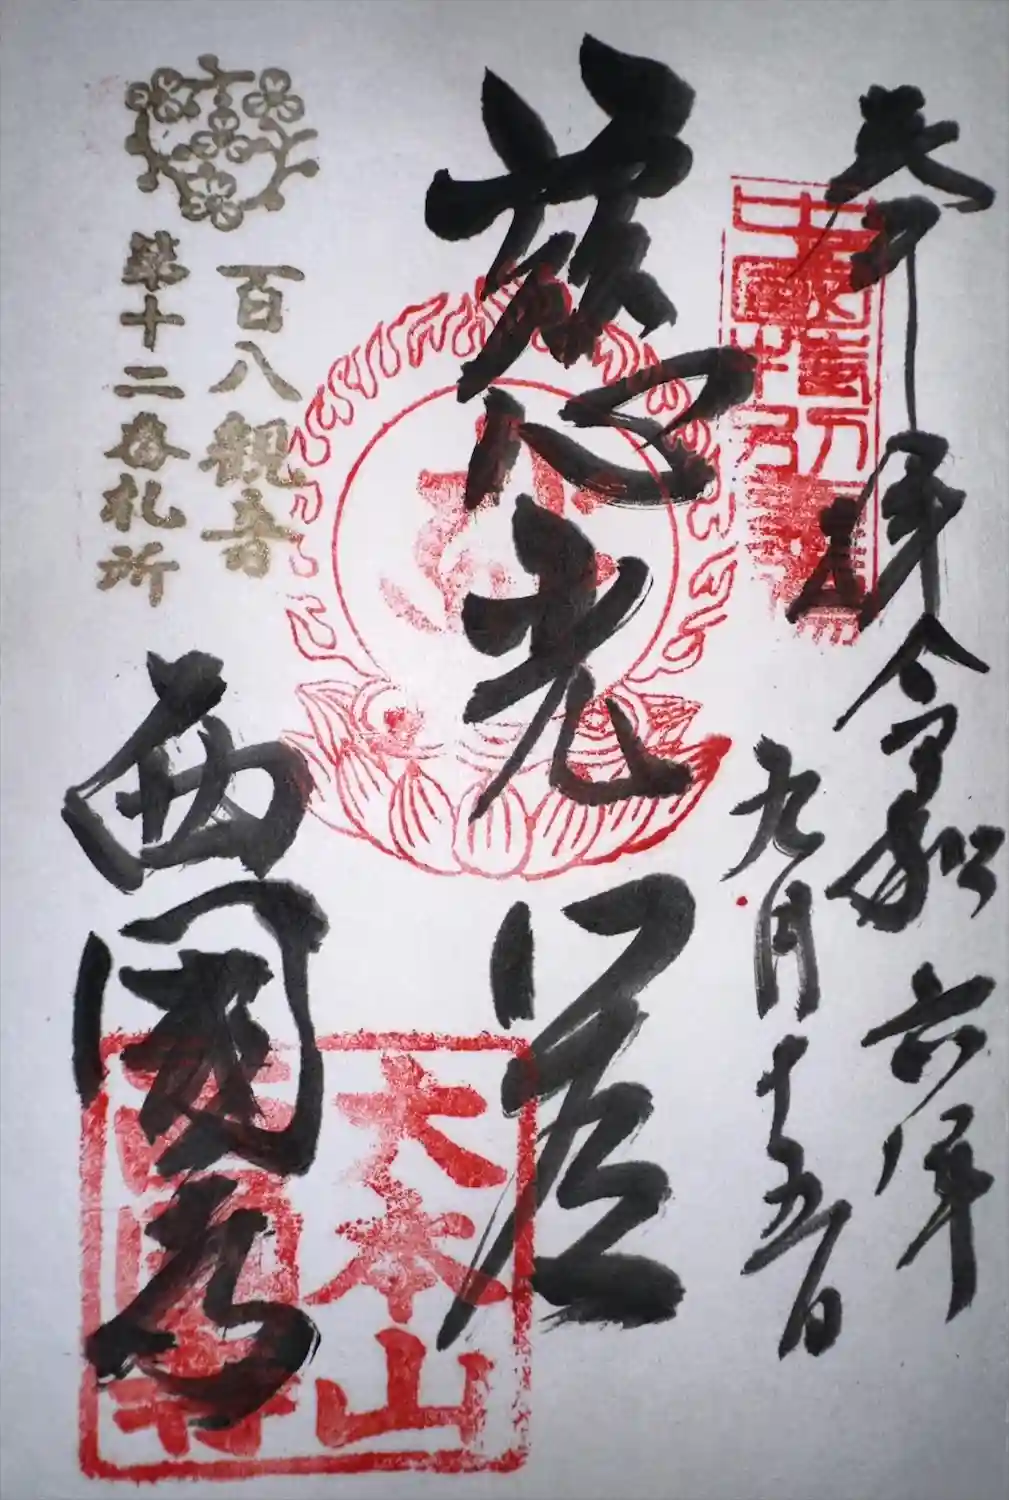 奉拝 令和六年
九月十五日
慈心光
西國寺
百八観音
第十二番札所
大本山
西國寺